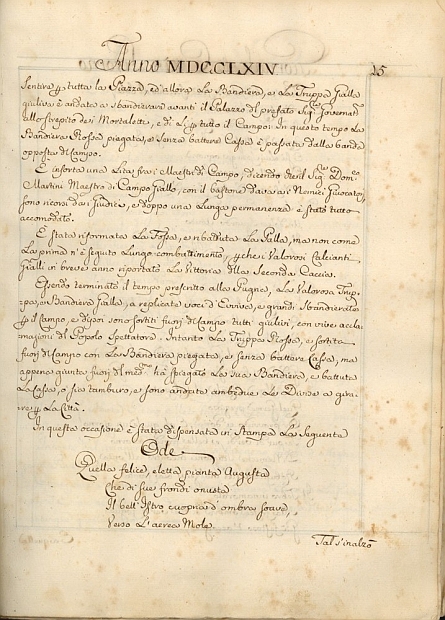 Anno MDCCLXIV
25
sentire p tutta la Piazza, ed allora la Bandiera, e la Truppa Gialla
giuliva è andata a sbandierare avanti il Palazzo del prefato Sig.r Governat.
allo strepito de' Mortaletti, e di là p tutto il Campo: In questo tempo la
Bandiera Rossa piegata, e senza battere Cassa è passata dalla banda
opposta di Campo.
È insorta una Lite fra i Maestri di Campo, dicendo che il Sig.r Dom.co
Martini Maestro di Campo Giallo, con il bastone i Nemici Giuocatori,
sono ricorsi dai Giudici, e doppo una Lunga permanenza è stato tutto
accomodato.
È stata riformata la Fossa, e ributtata la Palla, ma non come
la prima n'è seguito Lungo combattimento, p che i Valorosi Calcianti
Gialli in breve anno riportato la Vittoria della Seconda Caccia.
Essendo terminato il tempo prescritto alla Pugna, la Valorosa Trup-
pa, e Bandiera Gialla, a replicate voci d'Evviva, e grandi Sbandierate
p il Campo, e dipoi sono sortiti fuori di Campo tutti giulivi, con vive accla-
mazioni del Popolo Spettatore. Intanto la Truppa Rossa, è sortita
fuori di Campo con la Bandiera piegata, e senza battere Cassa, ma
appena giunta fuori del med.mo ha spiegato la sua Bandiera, e battuta
la Cassa, o sia tamburo, e sono andate ambedue le Divise a gira-
re p la Città.
In questa occasione è stata dispensata in Stampa la Seguente
Ode
Quella felice, eletta pianta Augusta
Che di sue frondi onusta
Il bell'Istro cuopria d'ombra soave,
Verso l'aerea Mole
Tal s'inalzò